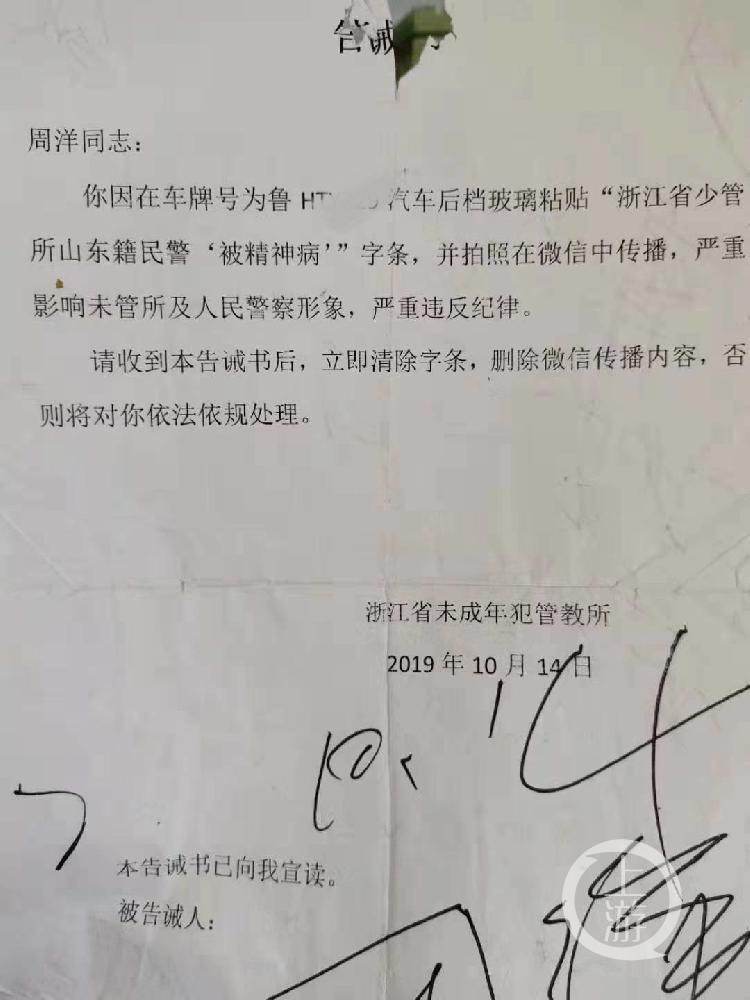 告诫
周洋同志：
你因在车牌号为鲁 HT 汽车后档玻璃粘贴“浙江省少管
所山东籍民警‘被精神病’”字条，并拍照在微信中传播，严重
影响未管所及人民警察形象，严重违反纪律。
请收到本告诫书后，立即清除字条，删除微信传播内容，否
则将对你依法依规处理。
浙江省未成年犯管教所
2019 年 10 月 14 日
本告诫书已向我宣读。
被告诫人：
上游